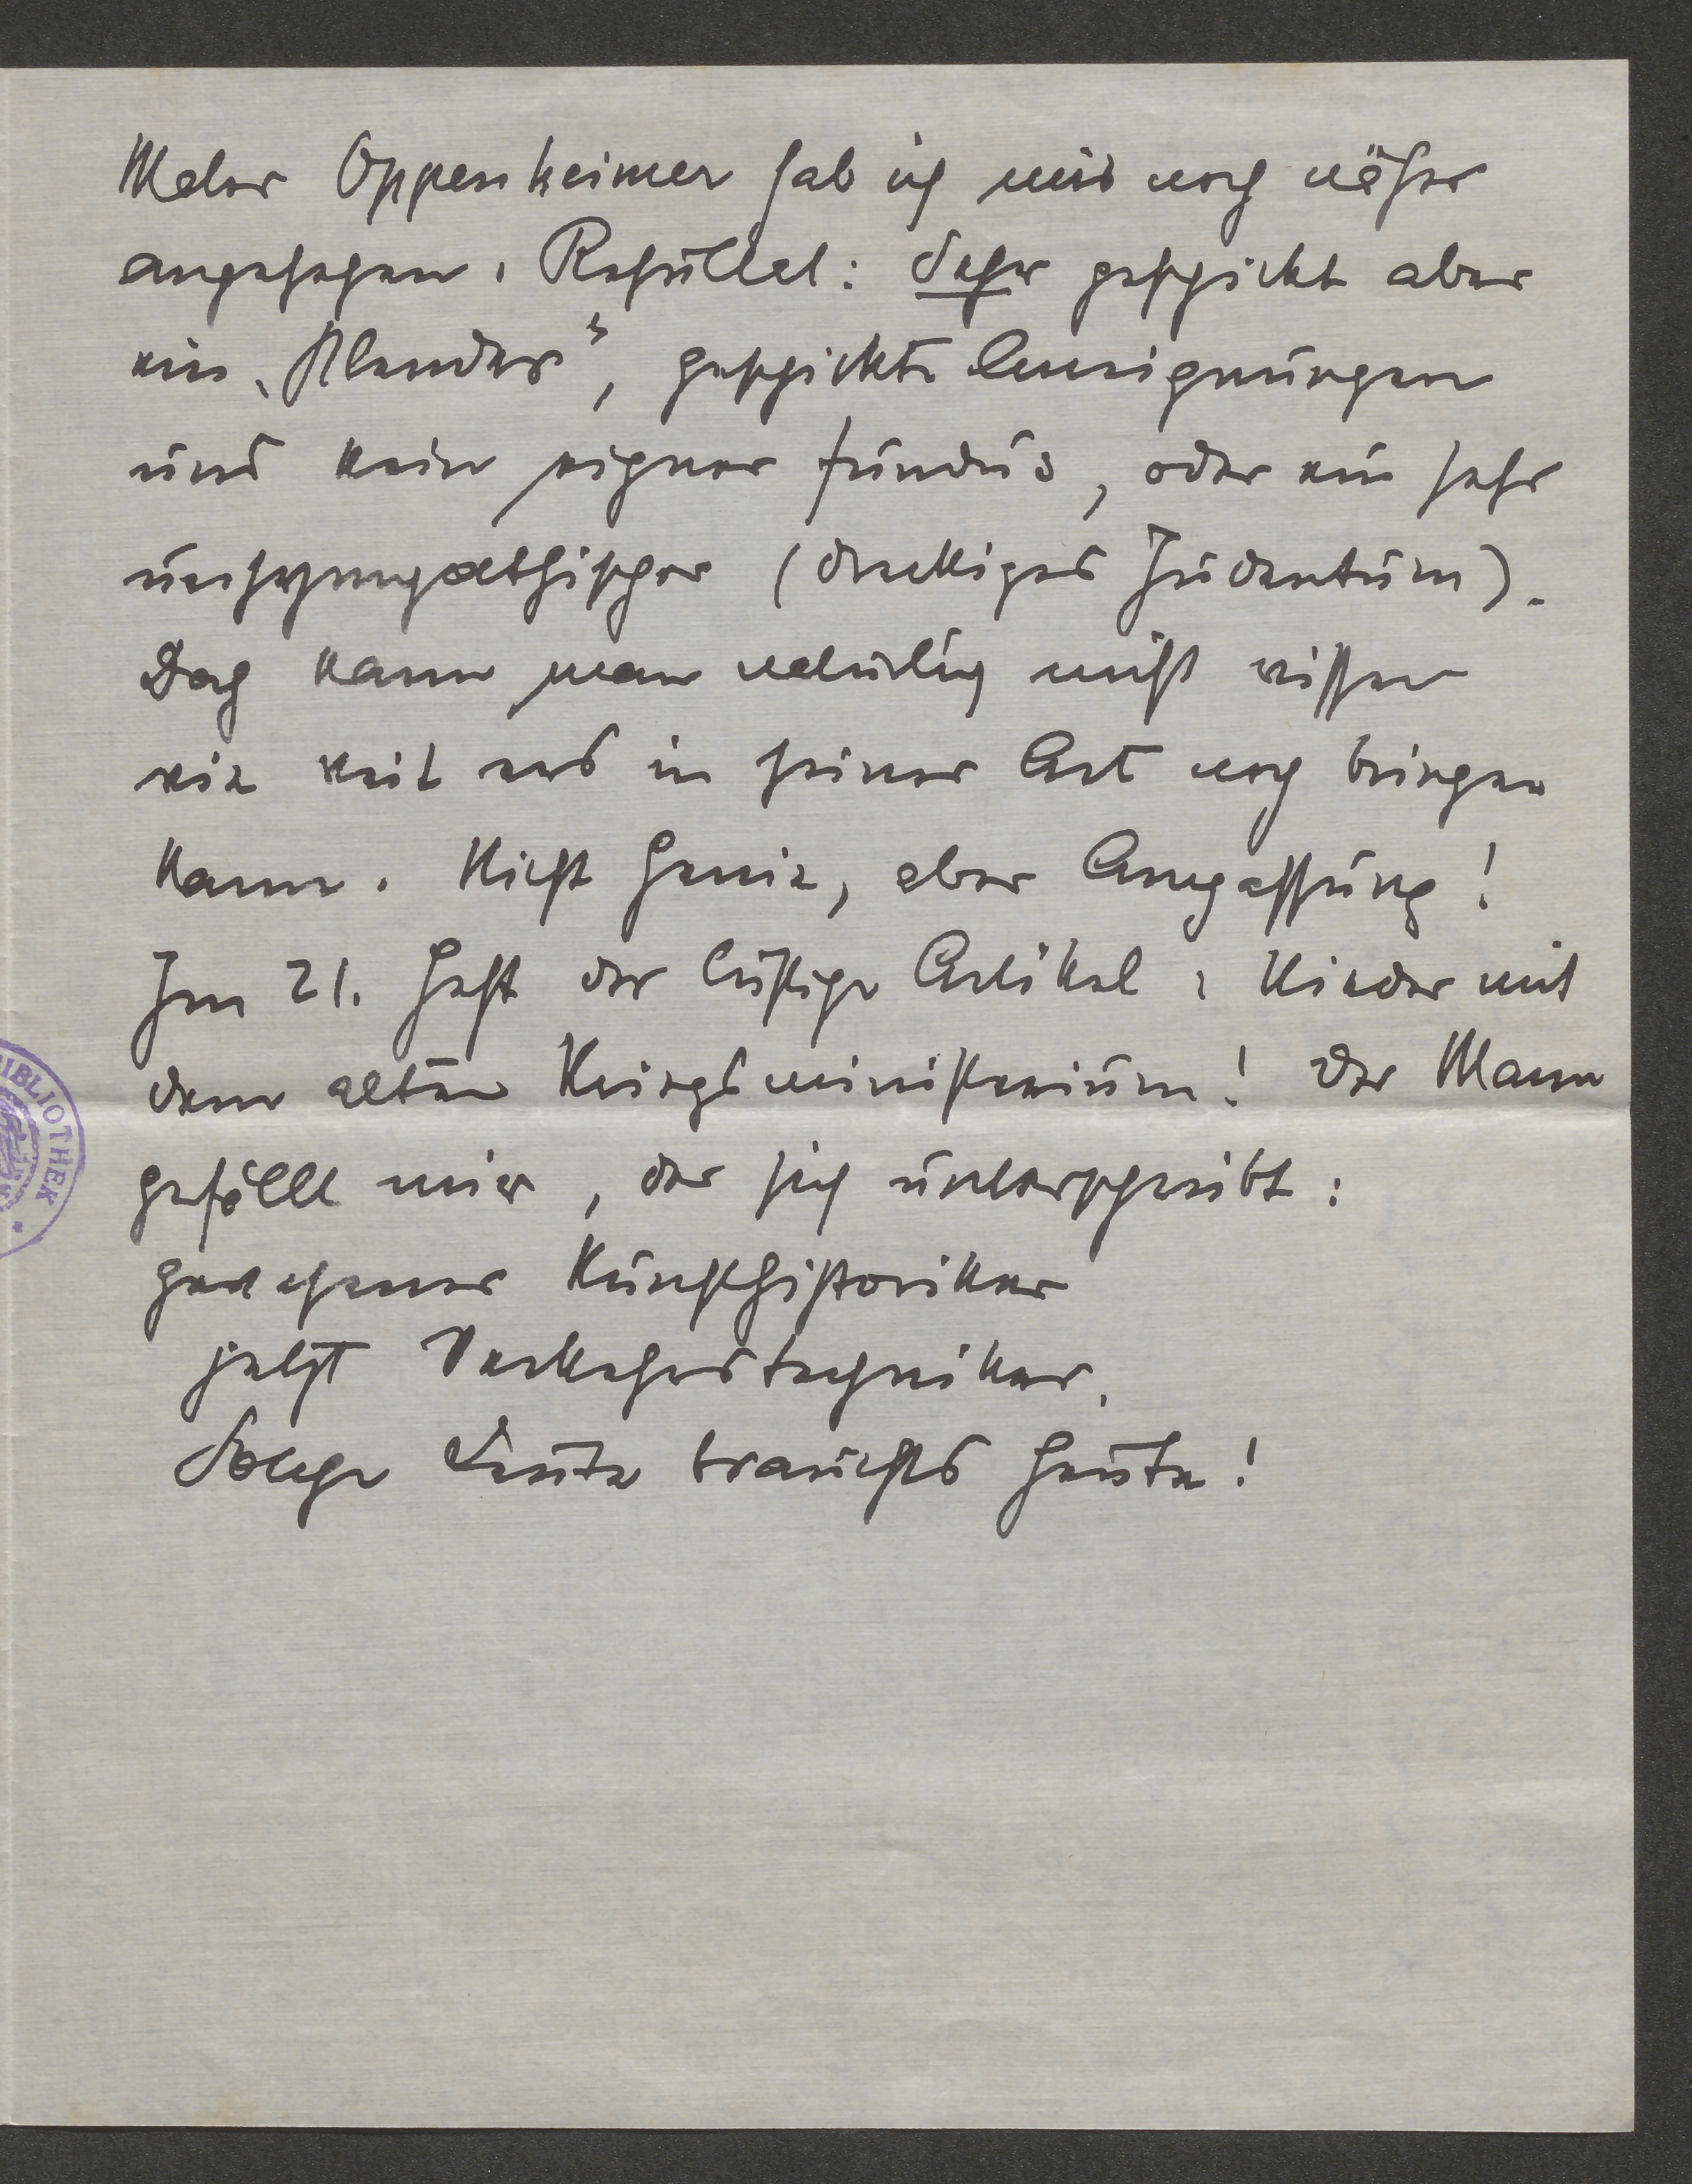 Maler Oppenheimer hab ich mir noch näher
angesehen. Resultat: Sehr geschickt aber
ein „Blender“, geschickte Aneignungen
und kein eigner fundus, oder ein sehr
unsympathischer (dreckiges Judentum).
Doch kann man natürlich nicht wissen
wie weit ers in seiner Art noch bringen
kann. Nicht Genie, aber Anpassung!
Im 21. Heft der lustige Artikel: Nieder mit
dem alten Kriegsministerium! Der Mann
gefällt mir, der sich unterschreibt:
gewesener Kunsthistoriker
jetzt Verkehrstechniker.
Solche Leute brauchts heute!
BIBLIOTHEK